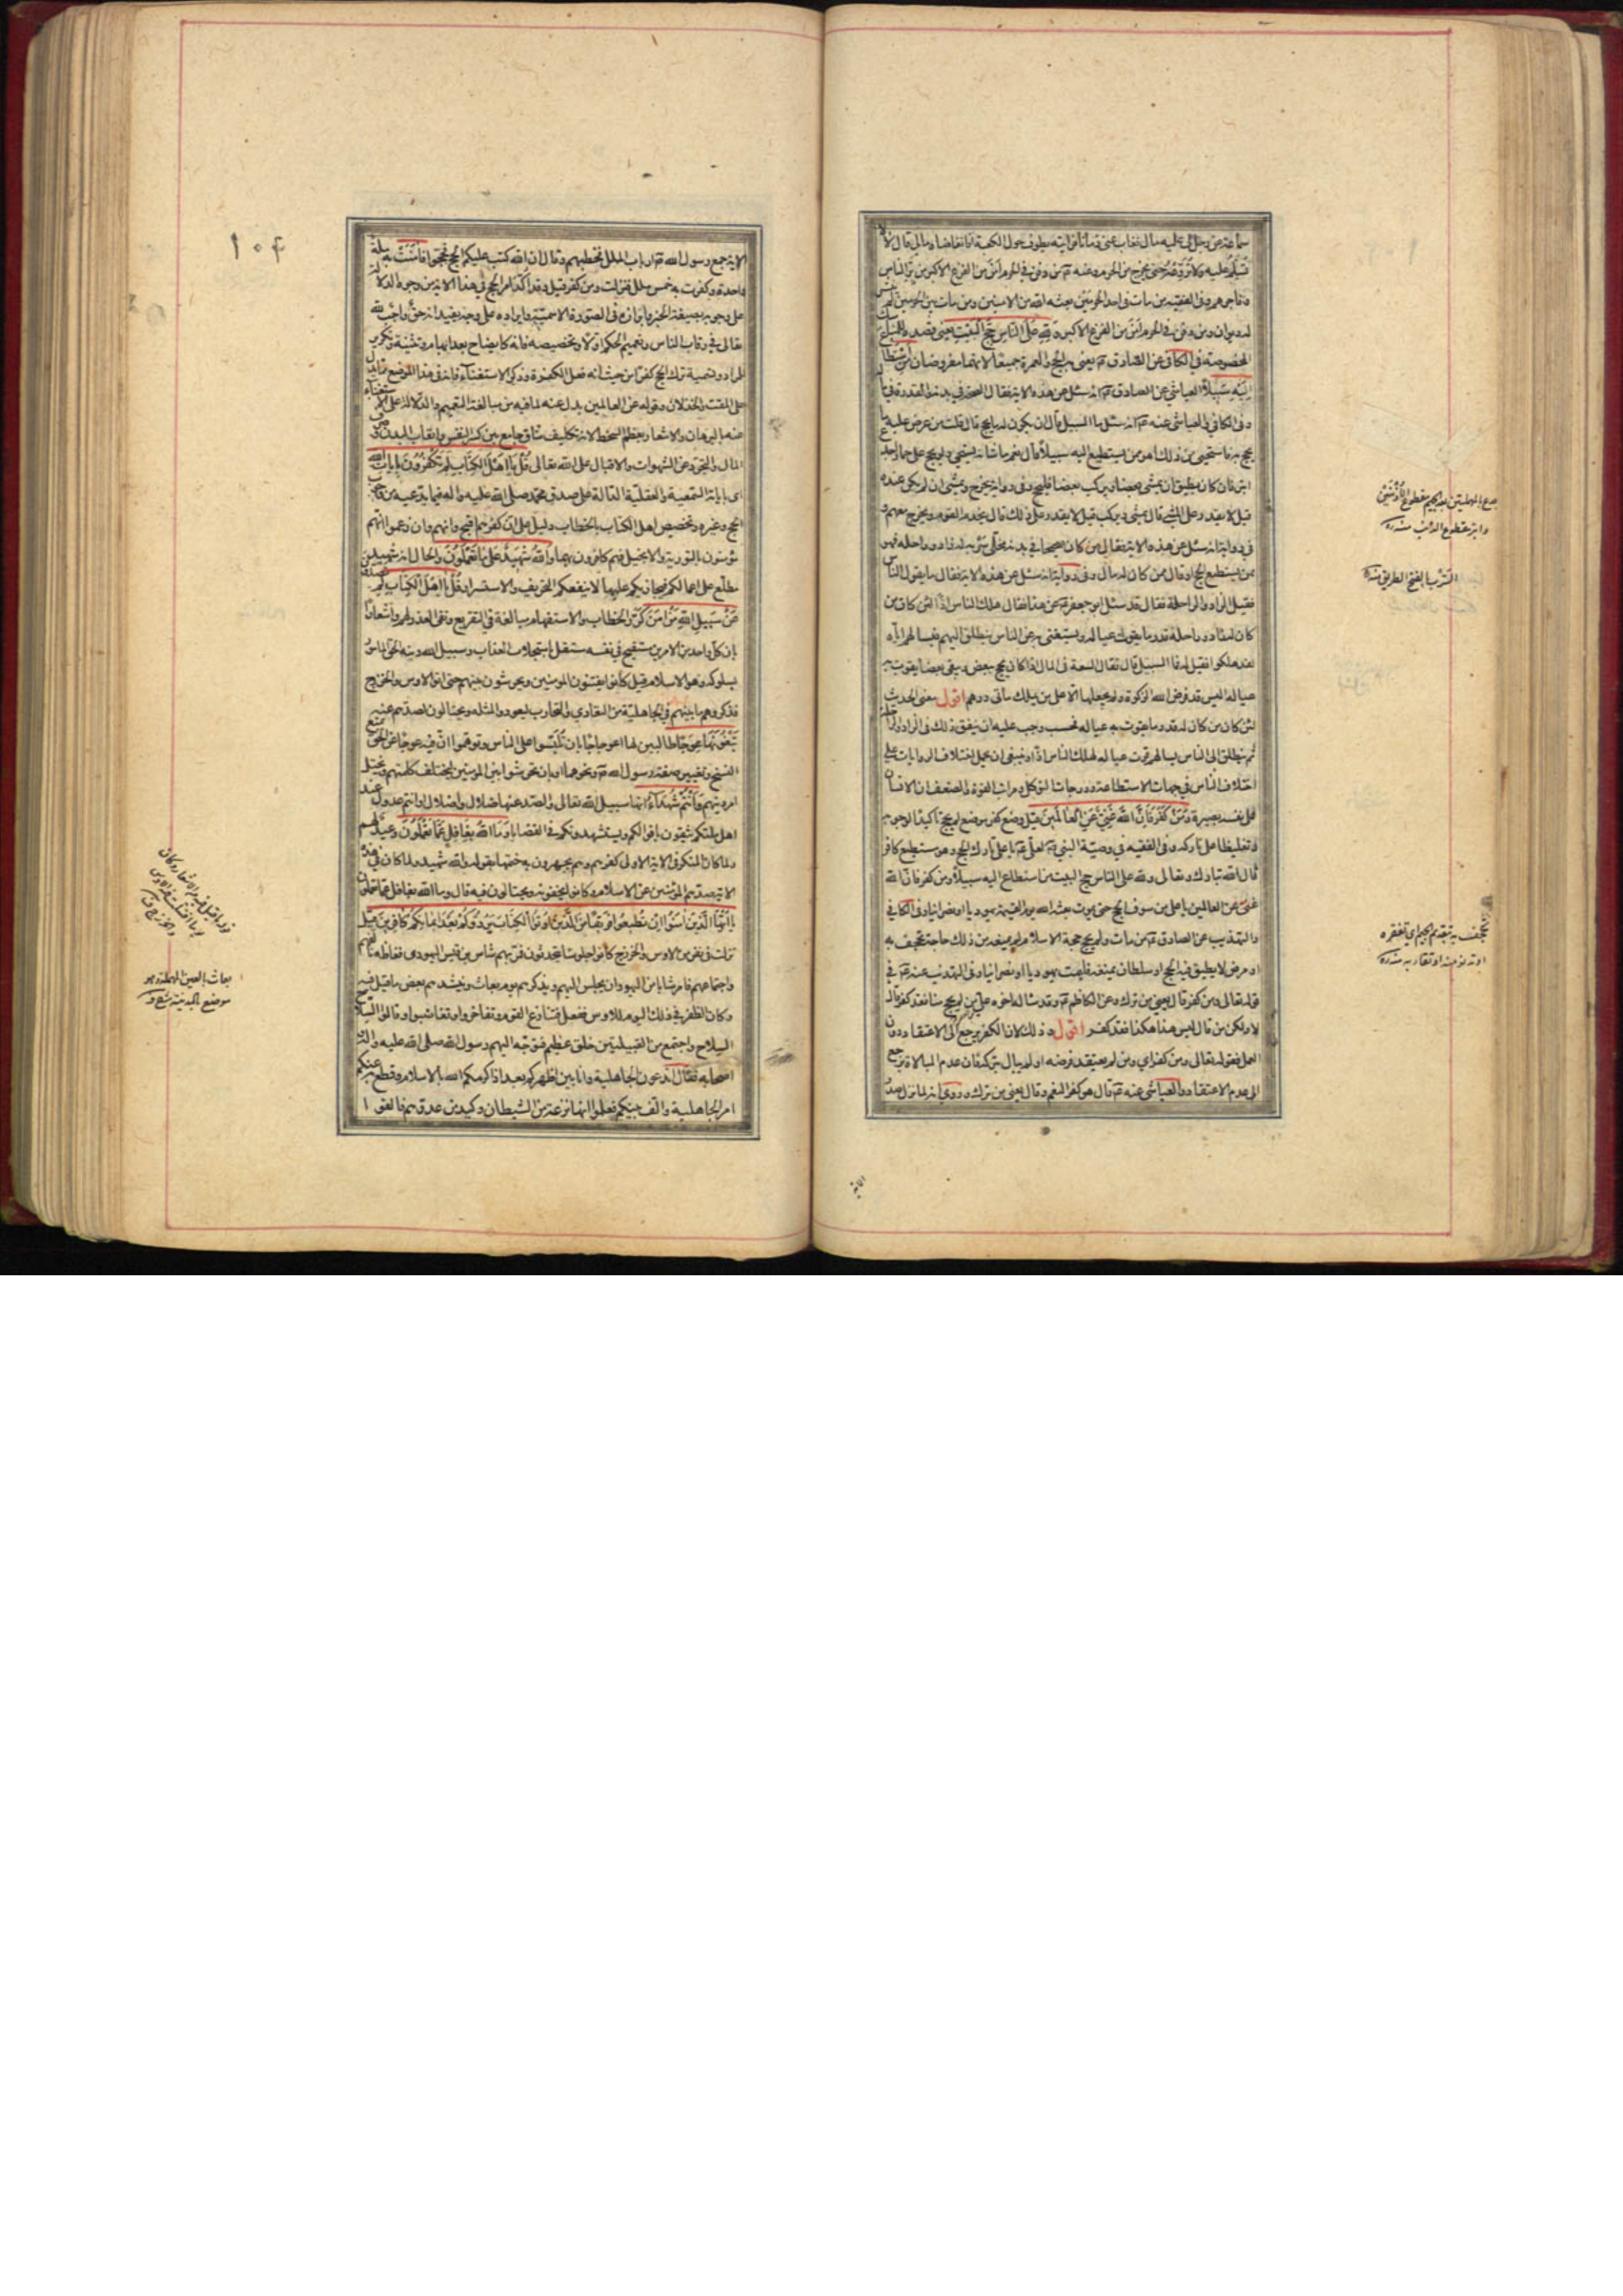 سماعة عن رجل لي عليه مال فغاب عني زمانا فرايته يطوف حول الكعبة افاتقاضاه مالي قال لا
تسلم عليه ولا تروعه حتى يخرج من الحرم وعنه ع من دفن في الحرم امن من الفزع الاكبر من بر الناس
وفاجرهم وفي الفقيه من مات في احد الحرمين بعثه الله من الامنين ومن مات بين الحرمين لم ينشر
له ديوان ومن دفن في الحرم امن من الفزع الاكبر ولله على الناس حج البيت يعني قصده للمناسك
المخصوصة في الكافي عن الصادق ع يعني به الحج والعمرة جميعا لانهما مفروضان من استطاع
اليه سبيلا العياشي عن الصادق ع انه سئل عن هذه الاية فقال الصحة في بدنه والقدرة في ماله
وفي الكافي والعياشي عنه ع انه سئل ما السبيل قال ان يكون له ما يحج به قال قلت من عرض عليه ما
يحج به فاستحيى من ذلك اهو ممن يستطيع اليه سبيلا قال نعم ما شانه يستحيي ولو يحج على حمار اجدع
ابتر فان كان يطيق ان يمشي بعضا ويركب بعضا فليحج وفي رواية يخرج ويمشي ان لم يكن عنده
قيل لا يقدر على المشي قال يمشي ويركب قيل لا يقدر على ذلك قال يخدم القوم ويخرج معهم و
في رواية انه سئل عن هذه الاية فقال من كان صحيحا في بدنه مخلى سربه له زاد وراحلة فهو
ممن يستطيع الحج او قال ممن كان له مال وفي رواية انه سئل عن هذه الاية فقال ما يقول الناس
فقيل الزاد والراحلة فقال قد سئل ابو جعفر ع عن هذا فقال هلك الناس اذا لئن كان من
كان له زاد وراحلة قدر ما يقوت عياله ويستغني به عن الناس ينطلق اليهم فيسلبهم اياه
لقد هلكوا فقيل له فما السبيل قال فقال السعة في المال اذا كان يحج ببعض ويبقي بعضا يقوت به
عياله اليس قد فرض الله الزكوة ولم يجعلها الا على من يملك مأتى درهم اقول معنى الحديث
لئن كان من كان له قدر ما يقوت به عياله فحسب وجب عليه ان ينفق ذلك في الزاد والراحلة
ثم ينطلق الى الناس يسالهم قوت عياله لهلك الناس اذا وينبغي ان يحمل اختلاف الروايات على
اختلاف الناس في جهات الاستطاعة ودرجات التوكل ومراتب القوة والضعف ان الانسان
على نفسه بصيرة ومن كفر فان الله غني عن العالمين قيل وضع كفر موضع لم يحج تاكيدا لوجوبه
وتغليظا على تاركه وفي الفقيه في وصية النبي ص لعلي ع يا علي تارك الحج وهو مستطيع كافر
قال الله تبارك وتعالى ولله على الناس حج البيت من استطاع اليه سبيلا ومن كفر فان الله
غني عن العالمين يا علي من سوف الحج حتى يموت بعثه الله يوم القيمة يهوديا او نصرانيا وفي الكافي
والتهذيب عن الصادق ع من مات ولم يحج حجة الاسلام لم يمنعه من ذلك حاجة تجحف به
او مرض لا يطيق فيه الحج او سلطان يمنعه فليمت يهوديا او نصرانيا وفي التهذيب عنه ع في
قوله تعالى ومن كفر قال يعني من ترك وعن الكاظم ع وقد ساله اخوه علي من لم يحج منا فقد كفر قال
لا ولكن من قال ليس هذا هكذا فقد كفر اقول وذلك لان الكفر يرجع الى الاعتقاد دون
العمل فقوله تعالى ومن كفر اي ومن لم يعتقد فرضه او لم يبال بتركه فان عدم المبالاة يرجع
الى عدم الاعتقاد والعياشي عنه ع قال هو كفر النعم وقال يعني من ترك وروي انه لما نزل صدر
جدع بالمهملتين بعد الجيم مقطوع الاذنين
وابتر مقطوع الذنب منه ره
السرب بالفتح الطريق منه ره
تجحف به بتقديم الجيم اي تفقره
او تدنو منه او تقاربه منه ره
الاية
١٠٤
الاية جمع رسول الله ص ارباب الملل فخطبهم وقال ان الله كتب عليكم الحج فحجوا فامنت به ملة
واحدة وكفرت به خمس ملل فنزلت ومن كفر قيل وقد اكد امر الحج في هذا الاية من وجوه الدلالة
على وجوبه بصيغة الخبر وابرازه في الصورة الاسمية وايراده على وجه يفيد انه حق واجب لله
تعالى في رقاب الناس وتعميم الحكم اولا وتخصيصه فانه كايضاح بعد ابهام وتثنية وتكرير
للمراد وتسمية ترك الحج كفرا من حيث انه فعل الكفرة وذكر الاستغناء فانه في هذا الموضع مما يدل
على المقت والخذلان وقوله عن العالمين يدل عنه لما فيه من مبالغة التعميم والدلالة على الاستغناء
عنه بالبرهان والاشعار بعظم السخط لانه تكليف شاق جامع بين كسر النفس واتعاب البدن وصرف
المال والتجرد عن الشهوات والاقبال على الله تعالى قل يا اهل الكتاب لم تكفرون بايات الله
اي باياته السمعية والعقلية الدالة على صدق محمد صلى الله عليه واله فيما يدعيه من وجوب
الحج وغيره وتخصيص اهل الكتاب بالخطاب دليل على ان كفرهم اقبح وانهم وان زعموا انهم
مؤمنون بالتورية والانجيل فهم كافرون بهما والله شهيد على ما تعملون والحال انه شهيد
مطلع على اعمالكم فيجازيكم عليها لا ينفعكم التحريف والاستسرار قل يا اهل الكتاب لم تصدون
عن سبيل الله من امن كرر الخطاب والاستفهام مبالغة في التقريع ونفى العذر لهم واشعارا
بان كل واحد من الامرين مستقبح في نفسه مستقل باستجلاب العذاب وسبيل الله دينه الحق المامور
بسلوكه وهو الاسلام قيل كانوا يفتنون المؤمنين ويحرشون بينهم حتى اتوا الاوس والخزرج
فذكروهم ما بينهم في الجاهلية من التعادي والتحارب ليعودوا لمثله ويحتالون لصدهم عنه
تبغونها عوجا طالبين لها اعوجاجا بان تلبسوا على الناس وتوهموا ان فيه عوجا عن الحق بمنع
النسخ وتغيير صفة رسول الله ص ونحوهما او بان تحرشوا بين المؤمنين ليختلف كلمتهم ويختل
امر دينهم وانتم شهداء انها سبيل الله تعالى والصد عنها ضلال واضلال او انتم عدول عند
اهل ملتكم يثقون باقوالكم ويستشهدونكم في القضايا وما الله بغافل عما تعملون وعيد لهم
ولما كان المنكر في الاية الاولى كفرهم وهم يجهرون به ختمها بقوله والله شهيد ولما كان في هذه
الاية صدهم المؤمنين عن الاسلام وكانوا يخفونه ويحتالون فيه قال وما الله بغافل عما تعملون
يا ايها الذين امنوا ان تطيعوا فريقا من الذين اوتوا الكتاب يردوكم بعد ايمانكم كافرين قيل
نزلت في نفر من الاوس والخزرج كانوا جلوسا يتحدثون فمر بهم شاس بن قيس اليهودي فغاظه تالفهم
واجتماعهم فامر شابا من اليهود ان يجلس اليهم ويذكرهم يوم بعاث وينشدهم بعض ما قيل فيه
وكان الظفر في ذلك اليوم للاوس ففعل فتنازع القوم وتفاخروا وتغاضبوا وقالوا السلاح
السلاح واجتمع من القبيلتين خلق عظيم فتوجه اليهم رسول الله صلى الله عليه واله و
اصحابه فقال اتدعون الجاهلية وانا بين اظهركم بعد اذ اكرمكم الله بالاسلام وقطع به عنكم
امر الجاهلية والف بينكم فعلموا انها نزغة من الشيطان وكيد من عدوهم فالقوا
بعاث بالعين المهملة وهو
موضع بالمدينة